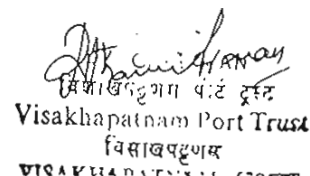 विशाखपट्टणम पोर्ट ट्रस्ट
Visakhapatnam Port Trust
विशाखपट्टणम
VISAKHAPATNAM